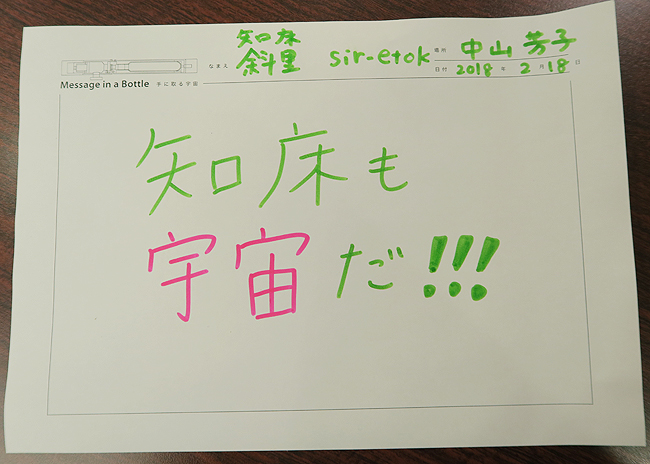 なまえ 知床 斜里 sir-etok 場所 中山 芳子
日付 2018 年 2 月 18 日
Message in a Bottle 手に取る宇宙
知床も
宇宙だ!!!